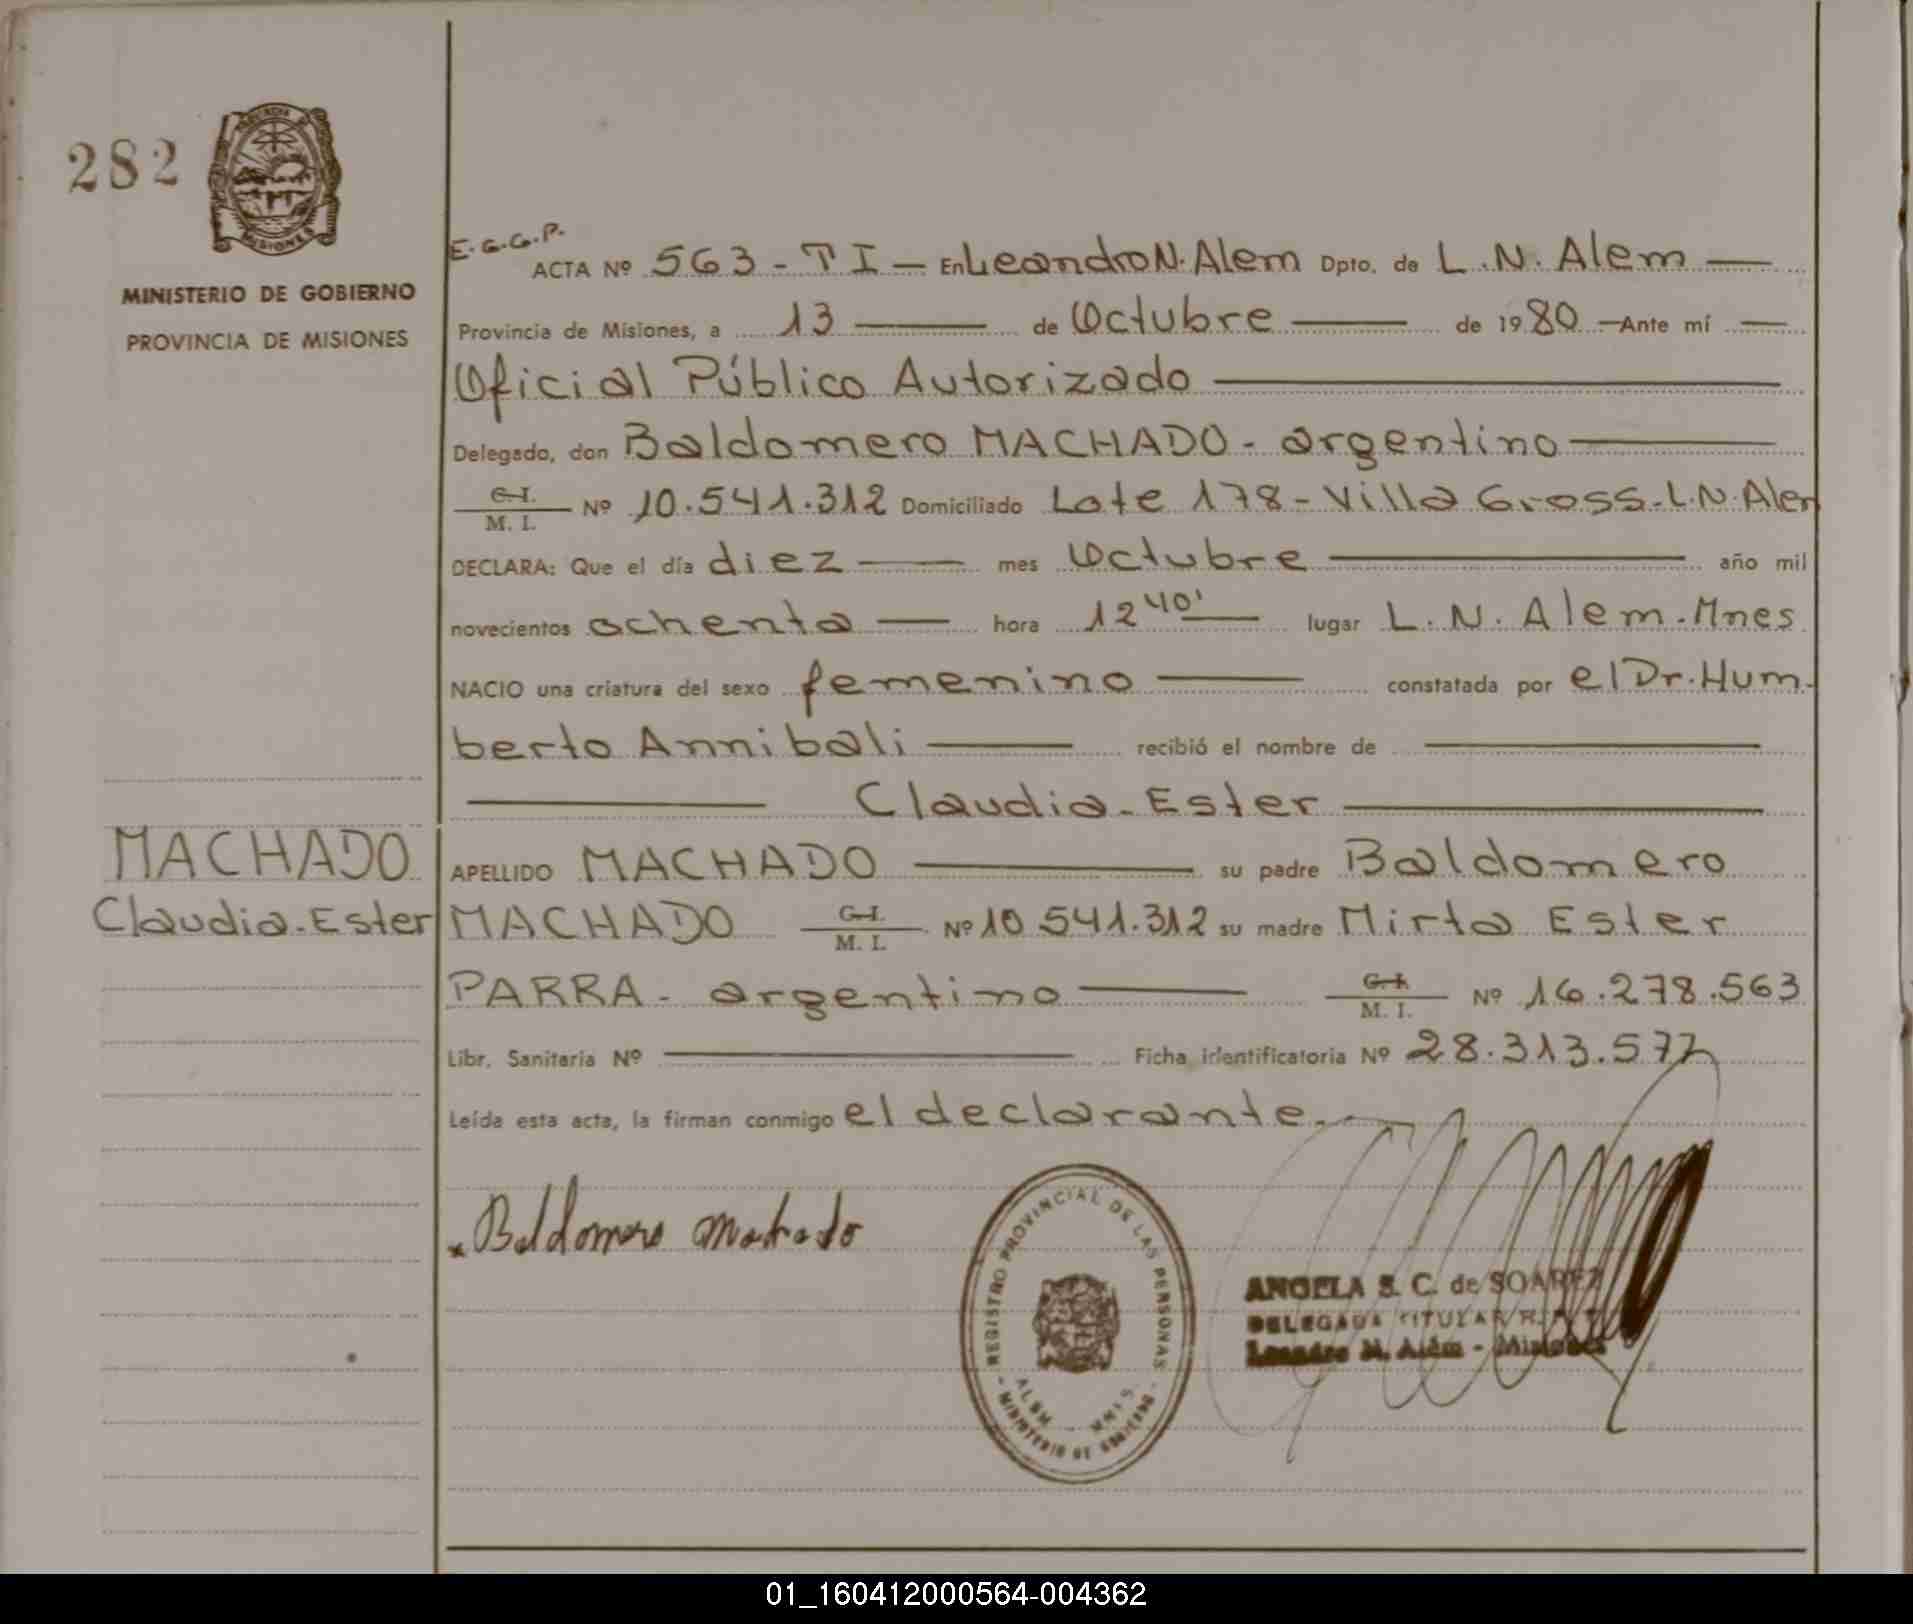 282
PROVINCIA DE
MISIONES
MINISTERIO DE GOBIERNO
PROVINCIA DE MISIONES
E.G.G.P.
ACTA Nº 563 - T I — En Leandro N. Alem Dpto. de L. N. Alem —
Provincia de Misiones, a 13 — de Octubre — de 1980 — Ante mí —
Oficial Público Autorizado —
Delegado, don Baldomero MACHADO - argentino —
C.I. / M. I. Nº 10.541.312 Domiciliado Lote 178 - Villa Gross - L.N. Alem
DECLARA: Que el día diez — mes Octubre — año mil
novecientos ochenta — hora 12 40' — lugar L. N. Alem. Mnes
NACIO una criatura del sexo femenino — constatada por el Dr. Hum-
berto Annibali — recibió el nombre de —
— Claudia - Ester —
MACHADO
Claudia - Ester
APELLIDO MACHADO — su padre Baldomero
MACHADO C.I. / M. I. Nº 10.541.312 su madre Mirta Ester
PARRA - argentino — C.I. / M. I. Nº 16.278.563
Libr. Sanitaria Nº — Ficha identificatoria Nº 28.313.577
Leída esta acta, la firman conmigo el declarante. —
Baldomero Machado
REGISTRO PROVINCIAL DE LAS PERSONAS
ALEM - MNES.
- MINISTERIO DE GOBIERNO -
ANGELA S. C. de SOAREZ
DELEGADA TITULAR R.
Leandro N. Alem - Misiones
01_160412000564-004362